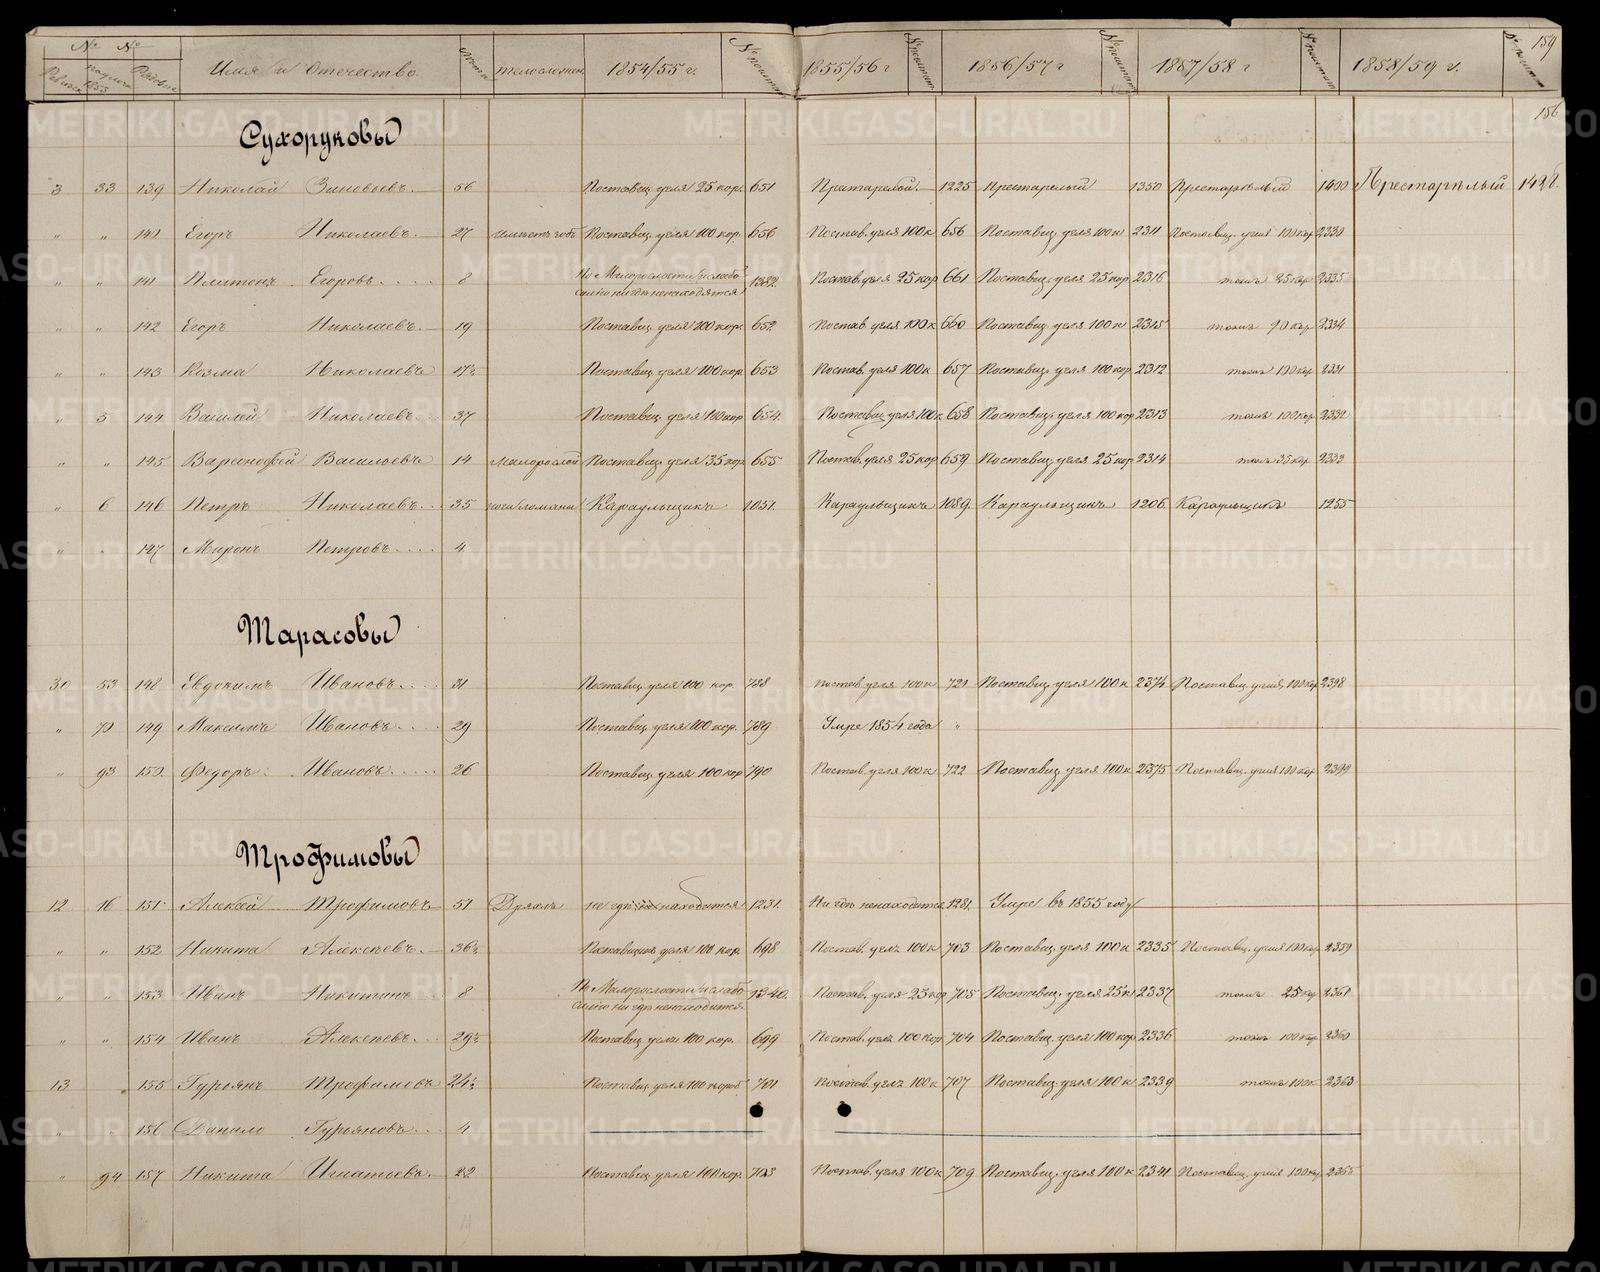 № № Имя и Отчество Лета Телосложен. 1854/55 г. № по штат. 1855/56 г № по штат. 1856/57 г № по штат. 1857/58 г № по штат. 1858/59 г. № по штат. 159
Ревизск. 1853 Рядовые
156
Сухоруковы
3 33 139 Николай Зиновьевъ. 56 Поставщ. угля 25 кор. 651 Престарелой. 1225 Престарелый 1350 Престарѣлый 1400 Престарѣлый 1428.
" " 140 Егоръ Николаевъ. 27 Поставщ. угля 100 кор. 656 Постав. угля 100 к 656 Поставщ. угля 100 к 2311 Поставщ. угля 100 кор 2330
" " 141 Платонъ Егоровъ. 8 По Малорослости и слабо- 1382. Постав. угля 25 кор 661 Поставщ. угля 25 кор 2316 тожъ 25 кор 2335
силію нигдѣ ненаходятся
" " 142 Егоръ Николаевъ. 19 Поставщ. угля 100 кор. 652 Постав. угля 100 к 660 Поставщ. угля 100 к 2315 тожъ 90 кор 2334
" " 143 Козма Николаевъ 17½ Поставщ. угля 100 кор 653 Постав. угля 100 к 657 Поставщ. угля 100 кор 2312 тожъ 100 кор 2331
" 5 144 Василей Николаевъ. 37 Поставщ. угля 100 кор 654. Поставщ. угля 100 к 658 Поставщ. угля 100 кор 2313 тожъ 100 кор 2332
" " 145 Варсонофей Васильевъ 14 Малорослой Поставщ. угля 35 кор 655 Постав. угля 25 кор 659 Поставщ. угля 25 кор 2314 тожъ 35 кор 2333
" 6 146 Петръ Николаевъ. 35 нога сломана Караульщикъ 1051. Караульщикъ 1089. Караульщикъ 1206. Караульщикъ 1255
" " 147 Миронъ Петровъ. 4
Тарасовы
30 53 148 Евдокимъ Ивановъ. 31 Поставщ. угля 100 кор. 788 постав. угля 100 к 721 Поставщ. угля 100 к 2374 Поставщ. угля 100 кор 2398
" 70 149 Максимъ Ивановъ. 29 Поставщ. угля 100 кор. 789 Умре 1854 года "
" 93 150. Федоръ Ивановъ. 26 Поставщ. угля 100 кор 790 Постав. угля 100 к 722 Поставщ. угля 100 к 2375 Поставщ. угля 100 кор 2399
Трофимовы
12 16 151 Алексей Трофимовъ 51 Дряхлъ не гдѣ находится 1231. Ни гдѣ ненаходится 1281. Умре въ 1855 году
" " 152 Никита Алексѣевъ. 36½ Поставщикъ угля 100 кор. 698 Постав. угля 100 к 703 Поставщ. угля 100 к 2335 Поставщ. угля 100 кор 2359
" " 153 Иванъ Никитинъ 8 По Малорослости и слабо- 1340. Постав. угля 25 кор 705 Поставщ. угля 25 к 2337 тожъ 25 кор 2361
силію ни гдѣ ненаходится.
" " 154 Иванъ Алексѣевъ. 29½ Поставщ. угля 100 кор. 699 Постав. угля 100 кор 704 Поставщ. угля 100 кор 2336 тожъ 100 кор 2360
13 155 Гурьянъ Трофимовъ 24½ Поставщ. угля 100 короб 701 Постав. угля 100 к 707 Поставщ. угля 100 к 2339 тожъ 100 к 2363
" " 156 Данило Гурьяновъ. 4
" 94 157 Никита Игнатьевъ. 22 Поставщ. угля 100 кор. 703 Постав. угля 100 к 709 Поставщ. угля 100 к 2341 Поставщ. угля 100 кор 2365